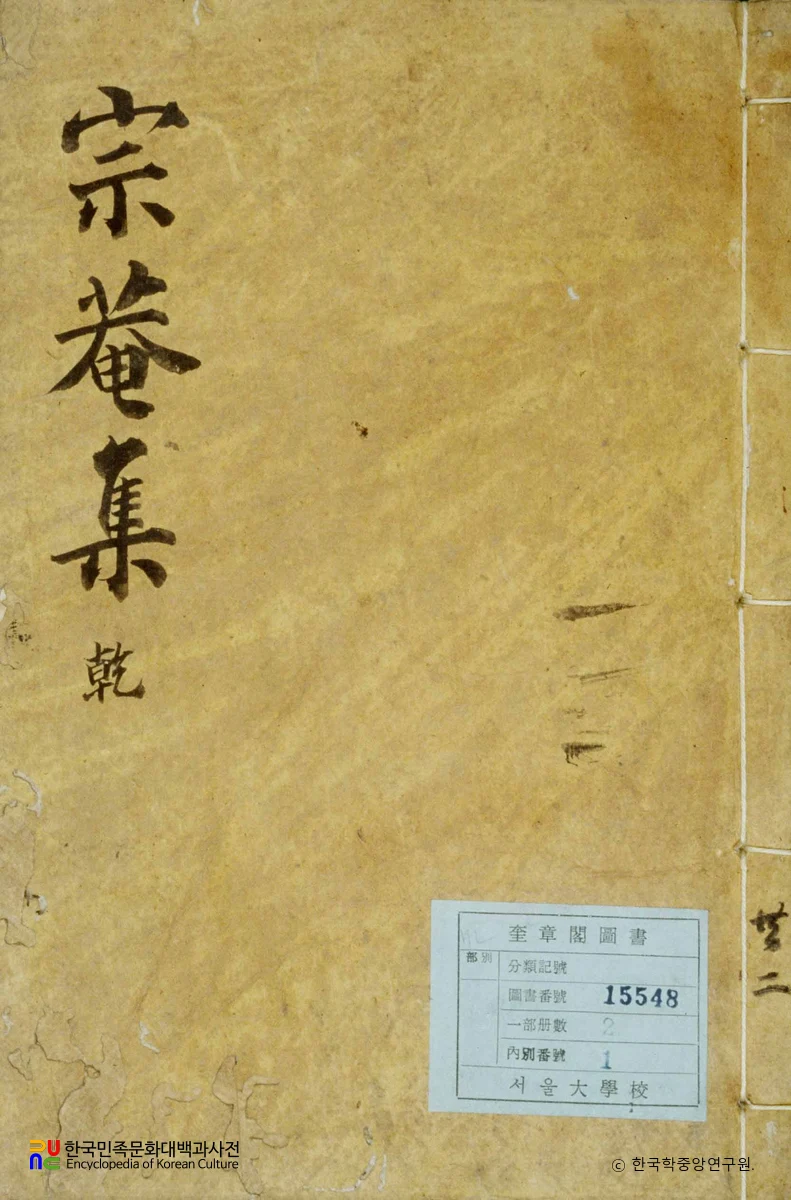 宗菴集
乾
共二
奎章閣圖書
部別
分類記號
圖書番號 15548
一部册數 2
內別番號 1
서울大學校
한국민족문화대백과사전
Encyclopedia of Korean Culture
ⓒ 한국학중앙연구원.